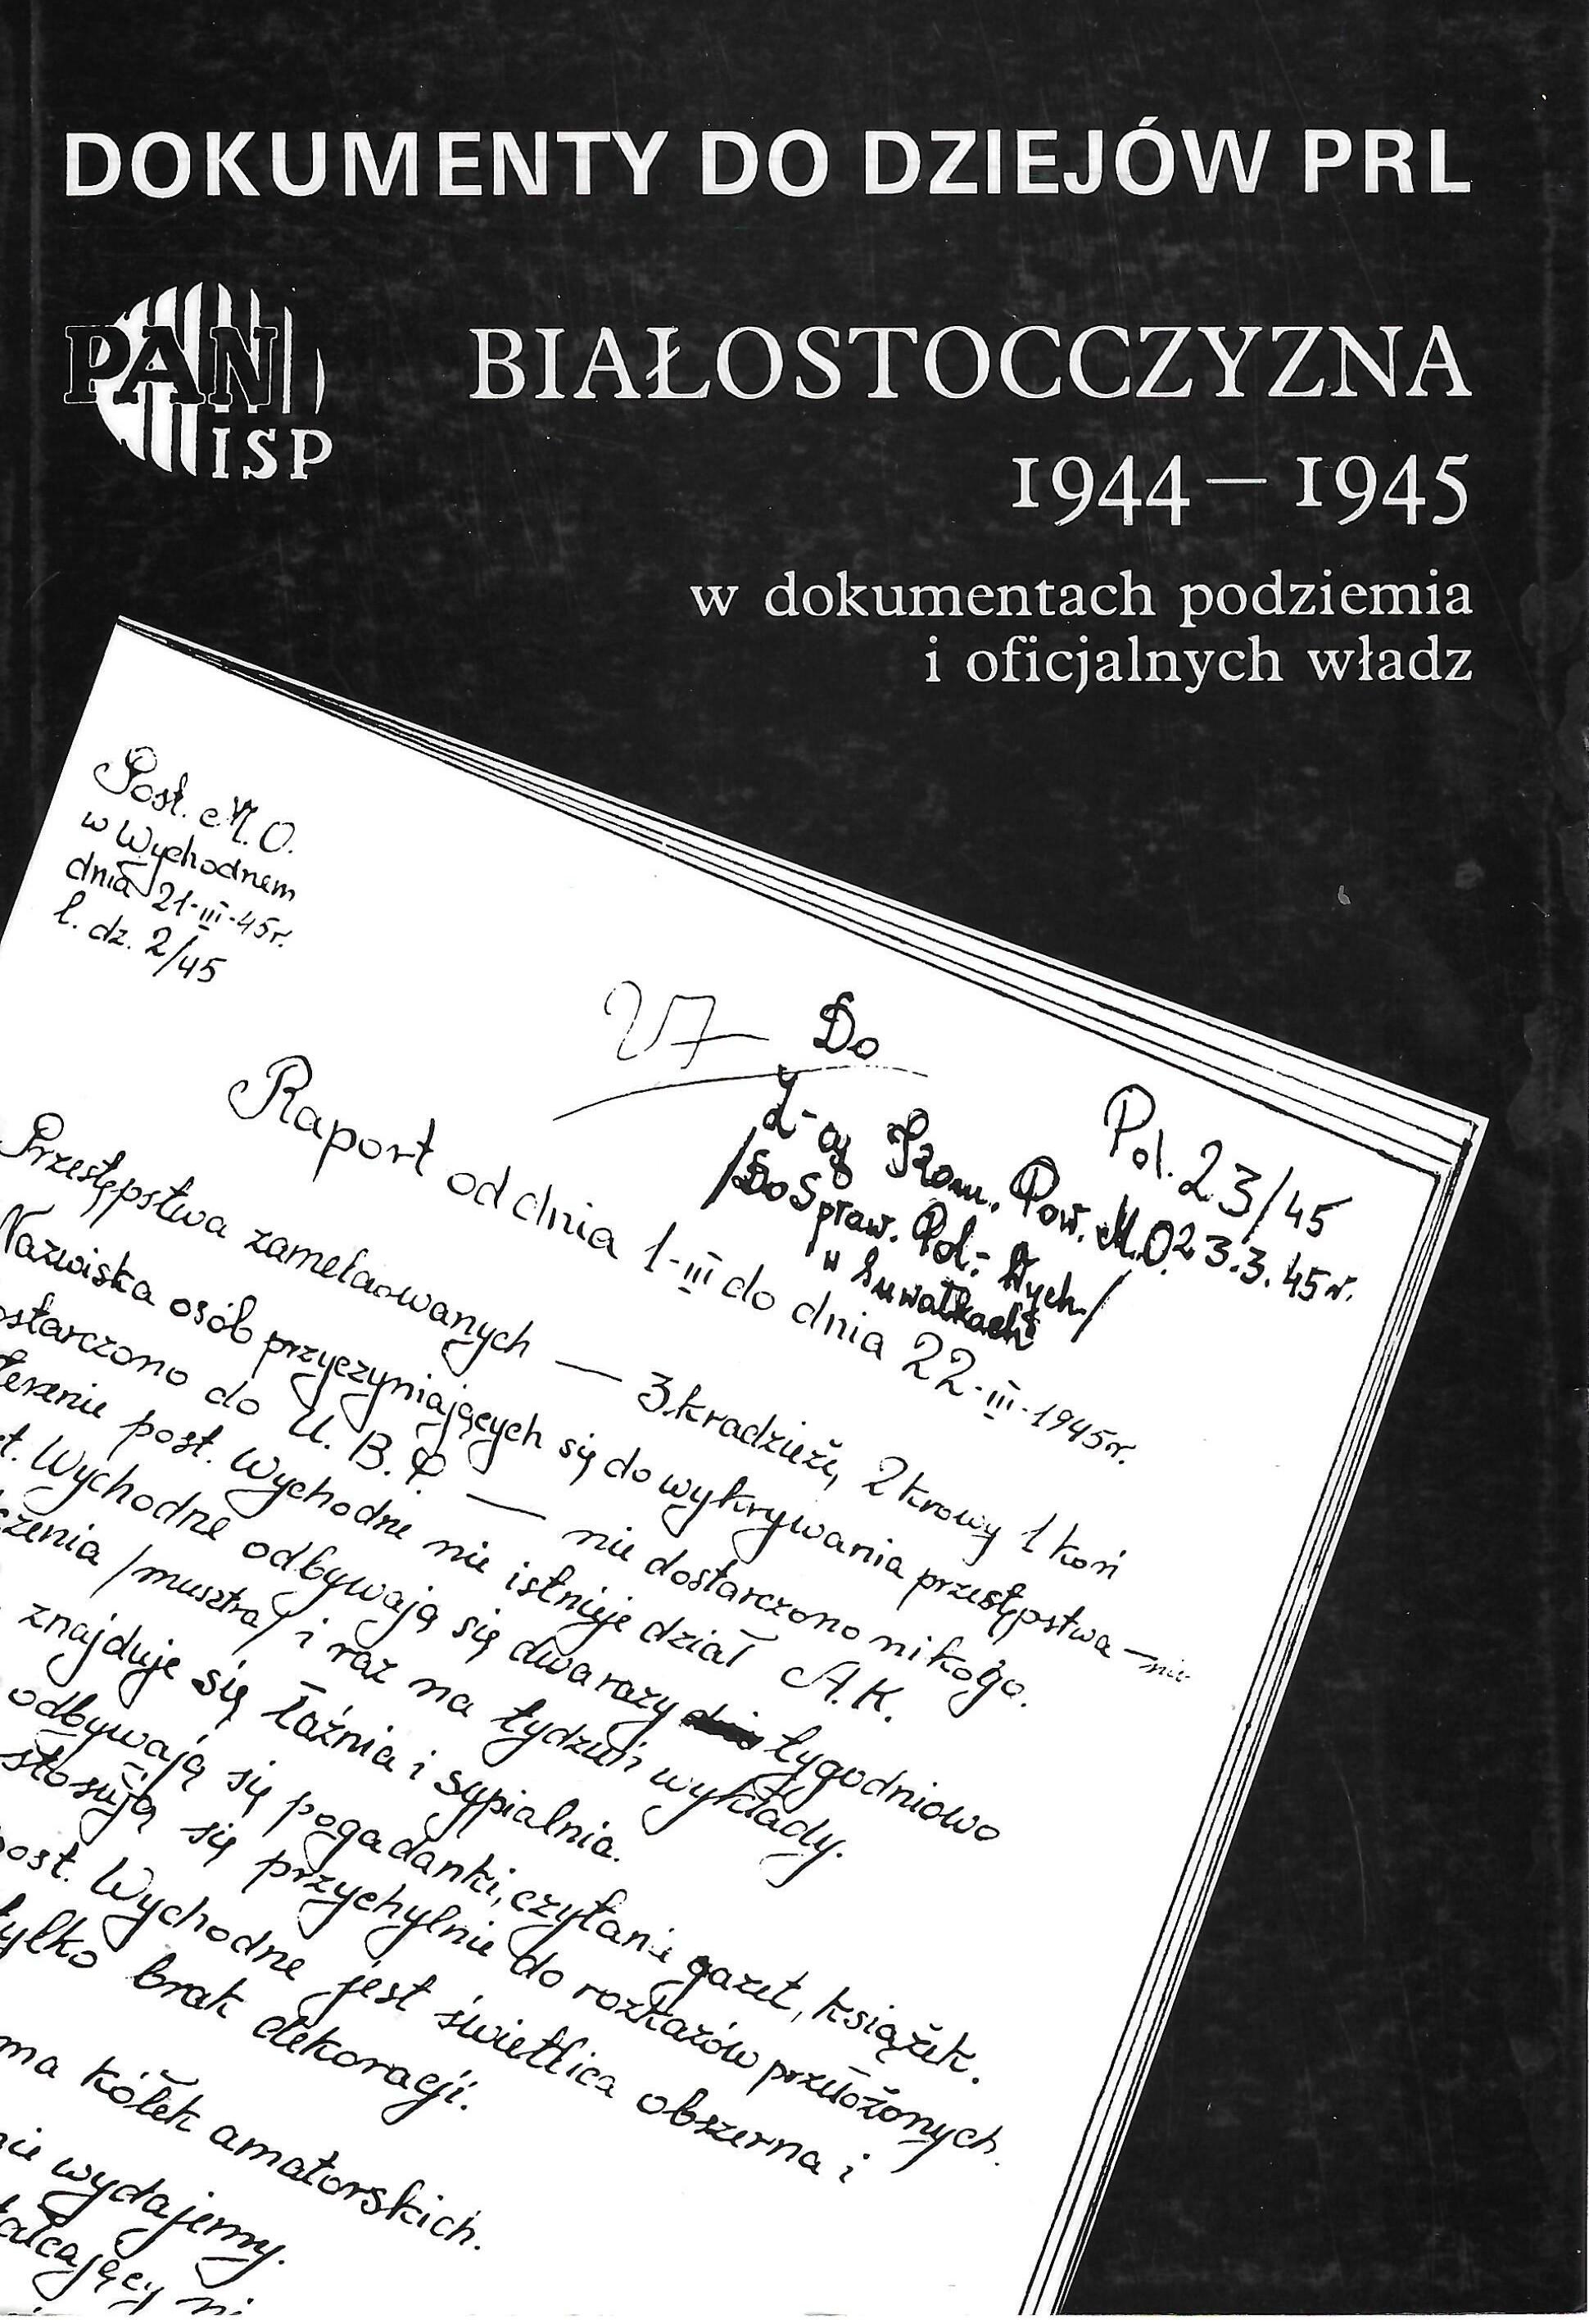 DOKUMENTY DO DZIEJÓW PRL
PAN
ISP
BIAŁOSTOCCZYZNA
1944 — 1945
w dokumentach podziemia
i oficjalnych władz
Post. M.O.
w Wychodnem
dnia 21-III-45r.
l. dz. 2/45
27
Do
Z-cy Kom. Pow. M.O.
/Do Spraw. Pol: Wych./
w Suwałkach
Pol. 23/45
23.3.45r.
Raport od dnia 1-III do dnia 22-III-1945r.
Przestępstwa zameldowanych — 3 kradzieże, 2 krowy 1 koń
Nazwiska osób przyczyniających się do wykrywania przestępstwa — nie
ostarczono do U.B.P. — nie dostarczono nikogo.
terenie post. Wychodne nie istnieje dział A.K.
t. Wychodne odbywają się dwa razy tygodniowo
czenia /musztra/ i raz na tydzień wykłady.
znajduje się łaźnia i sypialnia.
odbywają się pogadanki, czytanie gazet, książek.
stosują się przychylnie do rozkazów przełożonych.
post. Wychodne jest świetlica obszerna i
tylko brak dekoracji.
ma kółek amatorskich.
nie wydajemy.